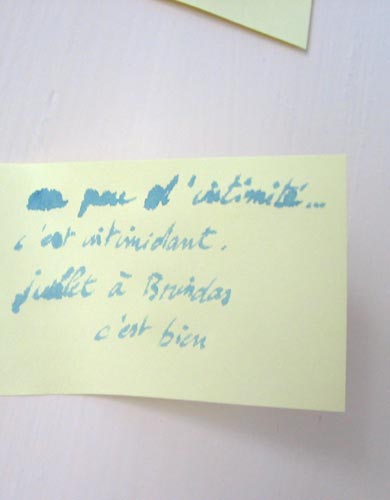 un peu d'intimité...
c'est intimidant.
juillet à Brindas
c'est bien